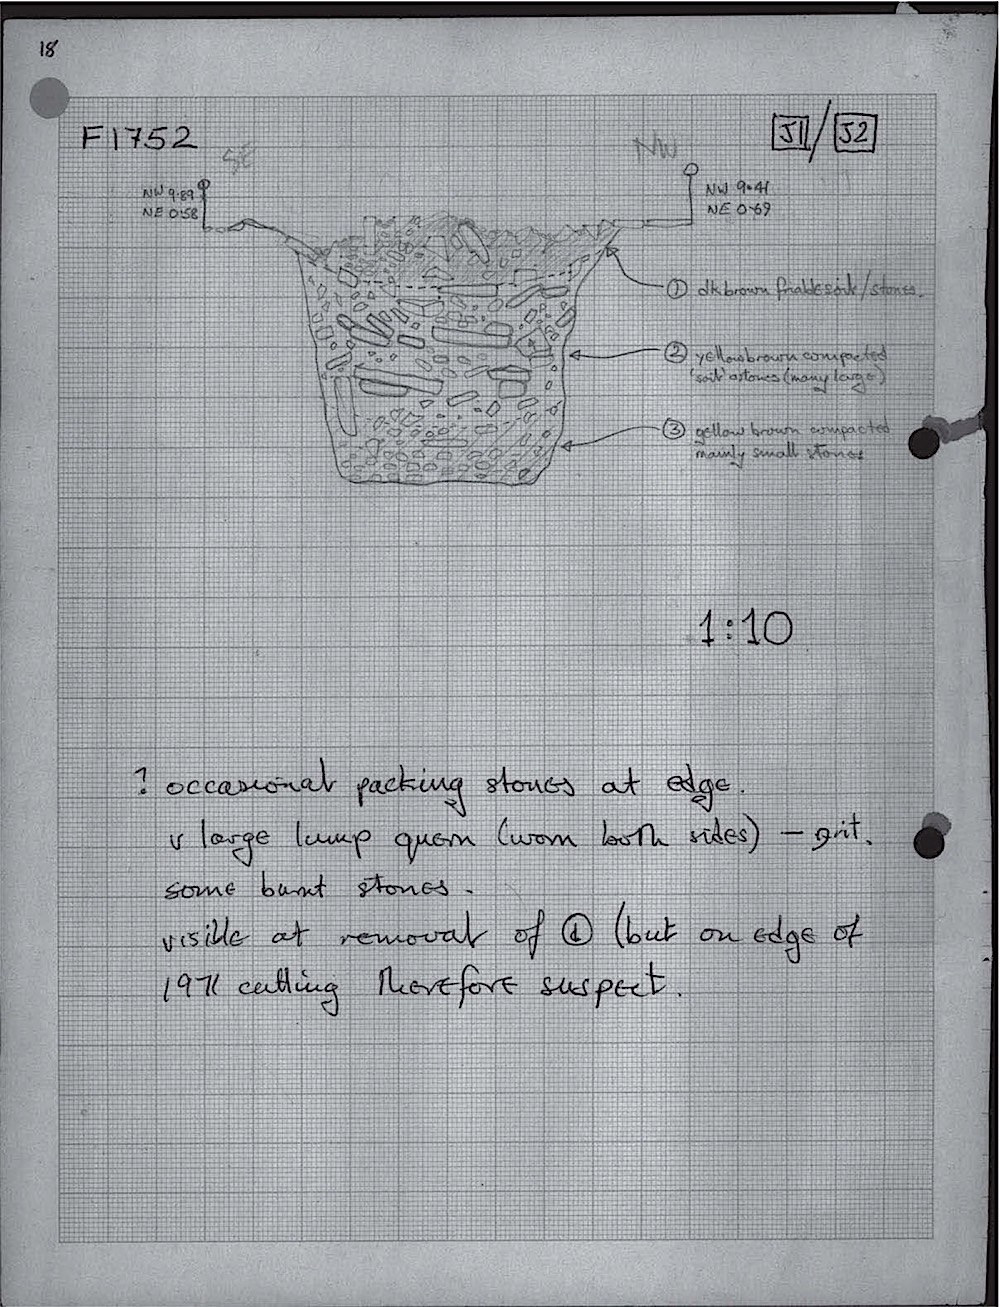 18
F1752
J1 / J2
SE
NW
NW 9.89
NE 0.58
NW 9.41
NE 0.69
① dk brown friable soil/stones.
② yellow brown compacted
'soil' & stones (many large)
③ yellow brown compacted
mainly small stones
1:10
? occasional packing stones at edge.
v large lump quern (worn both sides) – grit.
some burnt stones.
visible at removal of ① (but on edge of
1971 cutting therefore suspect.